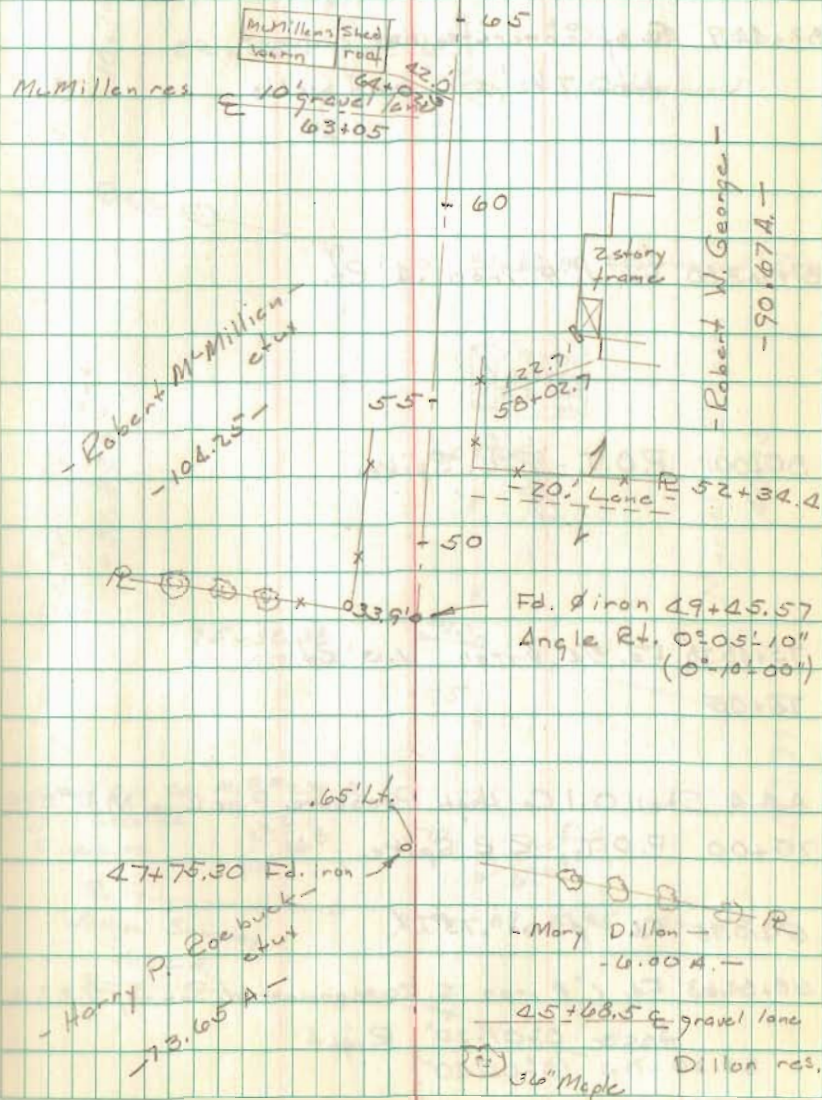 65
McMillens Shed
barn roof
42.0'
64+02
McMillen res
℄ 10' gravel lane
63+05
60
2 story
frame
- Robert W. George -
- 90.67 A. -
- Robert McMillien -
etux
- 104.25 -
122.7'
58+02.7
55
- 20' Lane -
℄ 52+34.4
50
33.9'
Fd. Ø iron 49+45.57
Angle Rt. 0°-05'-10"
(0°-10'-00")
.65' Lt.
47+75.30 Fd. iron
- Harry P. Roebuck -
etux
- 73.65 A. -
- Mary Dillon -
- 6.00 A. -
45+68.5 ℄ gravel lane
36" Maple
Dillon res.